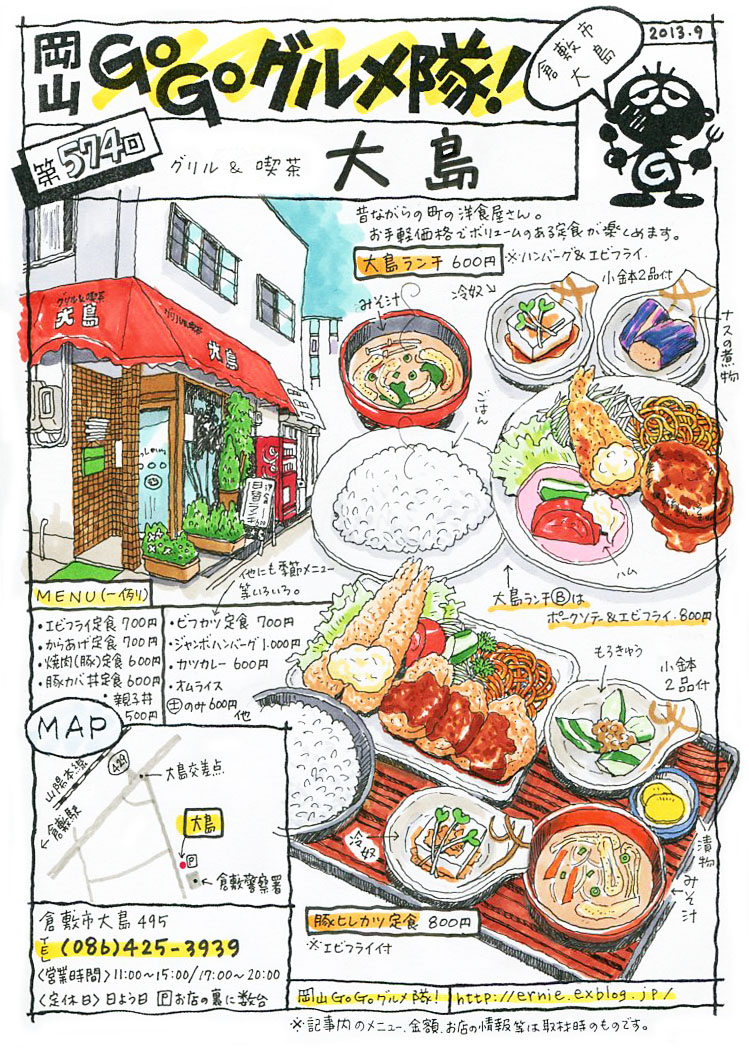 岡山GoGoグルメ隊!
倉敷市
大島
2013.9
第574回
グリル & 喫茶 大島
昔ながらの町の洋食屋さん。
お手軽価格でボリュームのある定食が楽しめます。
大島ランチ 600円 ※ハンバーグ&エビフライ.
小鉢2品付
冷奴
みそ汁
ナスの煮物
ごはん
ハム
グリル&喫茶
大島
グリル&喫茶
大島
日替ランチ
他にも季節メニュー
等いろいろ。
大島ランチⒷは
ポークソテー&エビフライ. 800円
MENU(一例)
・エビフライ定食 700円
・からあげ定食 700円
・焼肉(豚)定食 600円
・豚カバ丼定食 600円
・親子丼
500円
・ビフカツ定食 700円
・ジャンボハンバーグ 1.000円
・カツカレー 600円
・オムライス
㊏のみ600円 他
もろきゅう
小鉢
2品付
冷奴
漬物
みそ汁
豚ヒレカツ定食 800円
※エビフライ付
MAP
山陽本線
429
大島交差点
倉敷駅
大島
P
倉敷警察署
倉敷市大島495
TEL (086)425-3939
<営業時間> 11:00~15:00/17:00~20:00
<定休日> 日よう日 Pお店の裏に数台
岡山GoGoグルメ隊! http://ernie.exblog.jp/
※記事内のメニュー、金額、お店の情報等は取材時のものです。